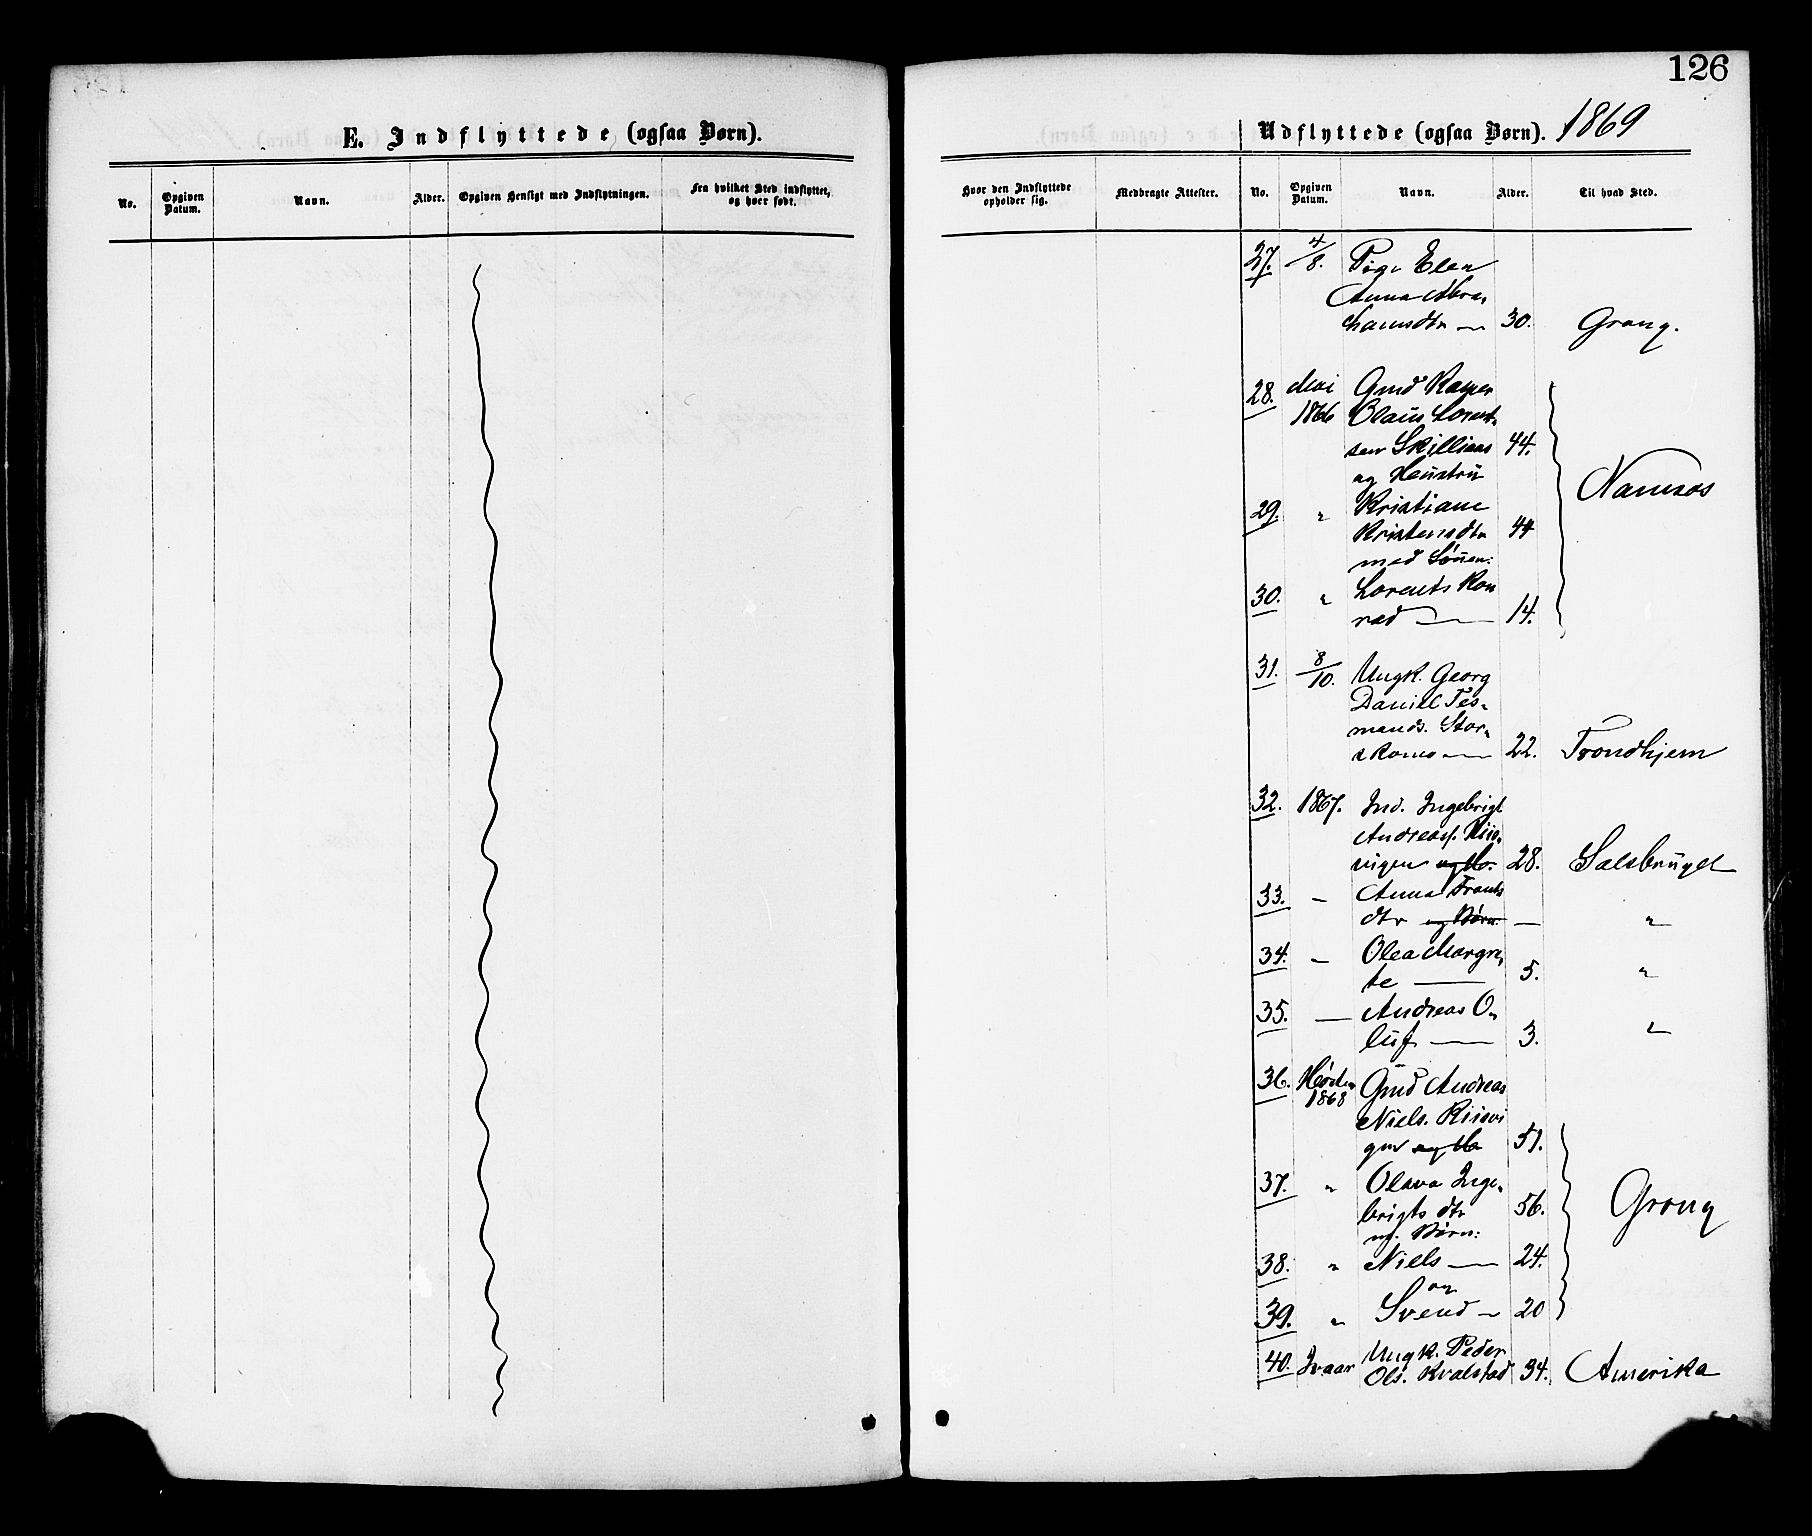 126
E. Indflyttede (ogsaa Børn).
No. Opgiven Datum. Navn. Alder. Opgiven Hensigt med Indflytningen. Fra hvilket Sted indflyttet, og hvor født.
Udflyttede (ogsaa Børn). 1869
Hvor den Indflyttede opholder sig. Medbragte Attester. No. Opgiven Datum. Navn. Alder. Til hvad Sted.
27. 4/8. Pige Elen
Anna Abra-
hamsdtr — 30. Grong.
28. Mai Gmd
1866 Olaus Lorent-
sen Skilliaas 44.
og Hustru
Namsos
29. " Kristiane
Kristensdtr 44
med Sønen:
30. " Lorents Kon
rad — 14.
31. 8/10. Ungk. Georg
Daniel Tes-
mands. Stor-
— 22. Trondhjem
32. 1867. Ind. Ingebrigt
Andreass. Riis-
vigen og 28. Salsbruget
33. — Anna Frants
dtr og Børn — "
34. — Olea Margre-
te — 5. "
35. — Andreas O-
luf — 3. "
36. Høsten Gmd Andreas
1868
Niels. Riisvi
gen og 51.
37. " Olava Inge-
brigts dtr 56. Grong
m. Børn:
38. " Niels — 24.
og
39. " Svend — 20
40. Ivaar Ungk. Peder
Ols. Kvalstad 34. Amerika